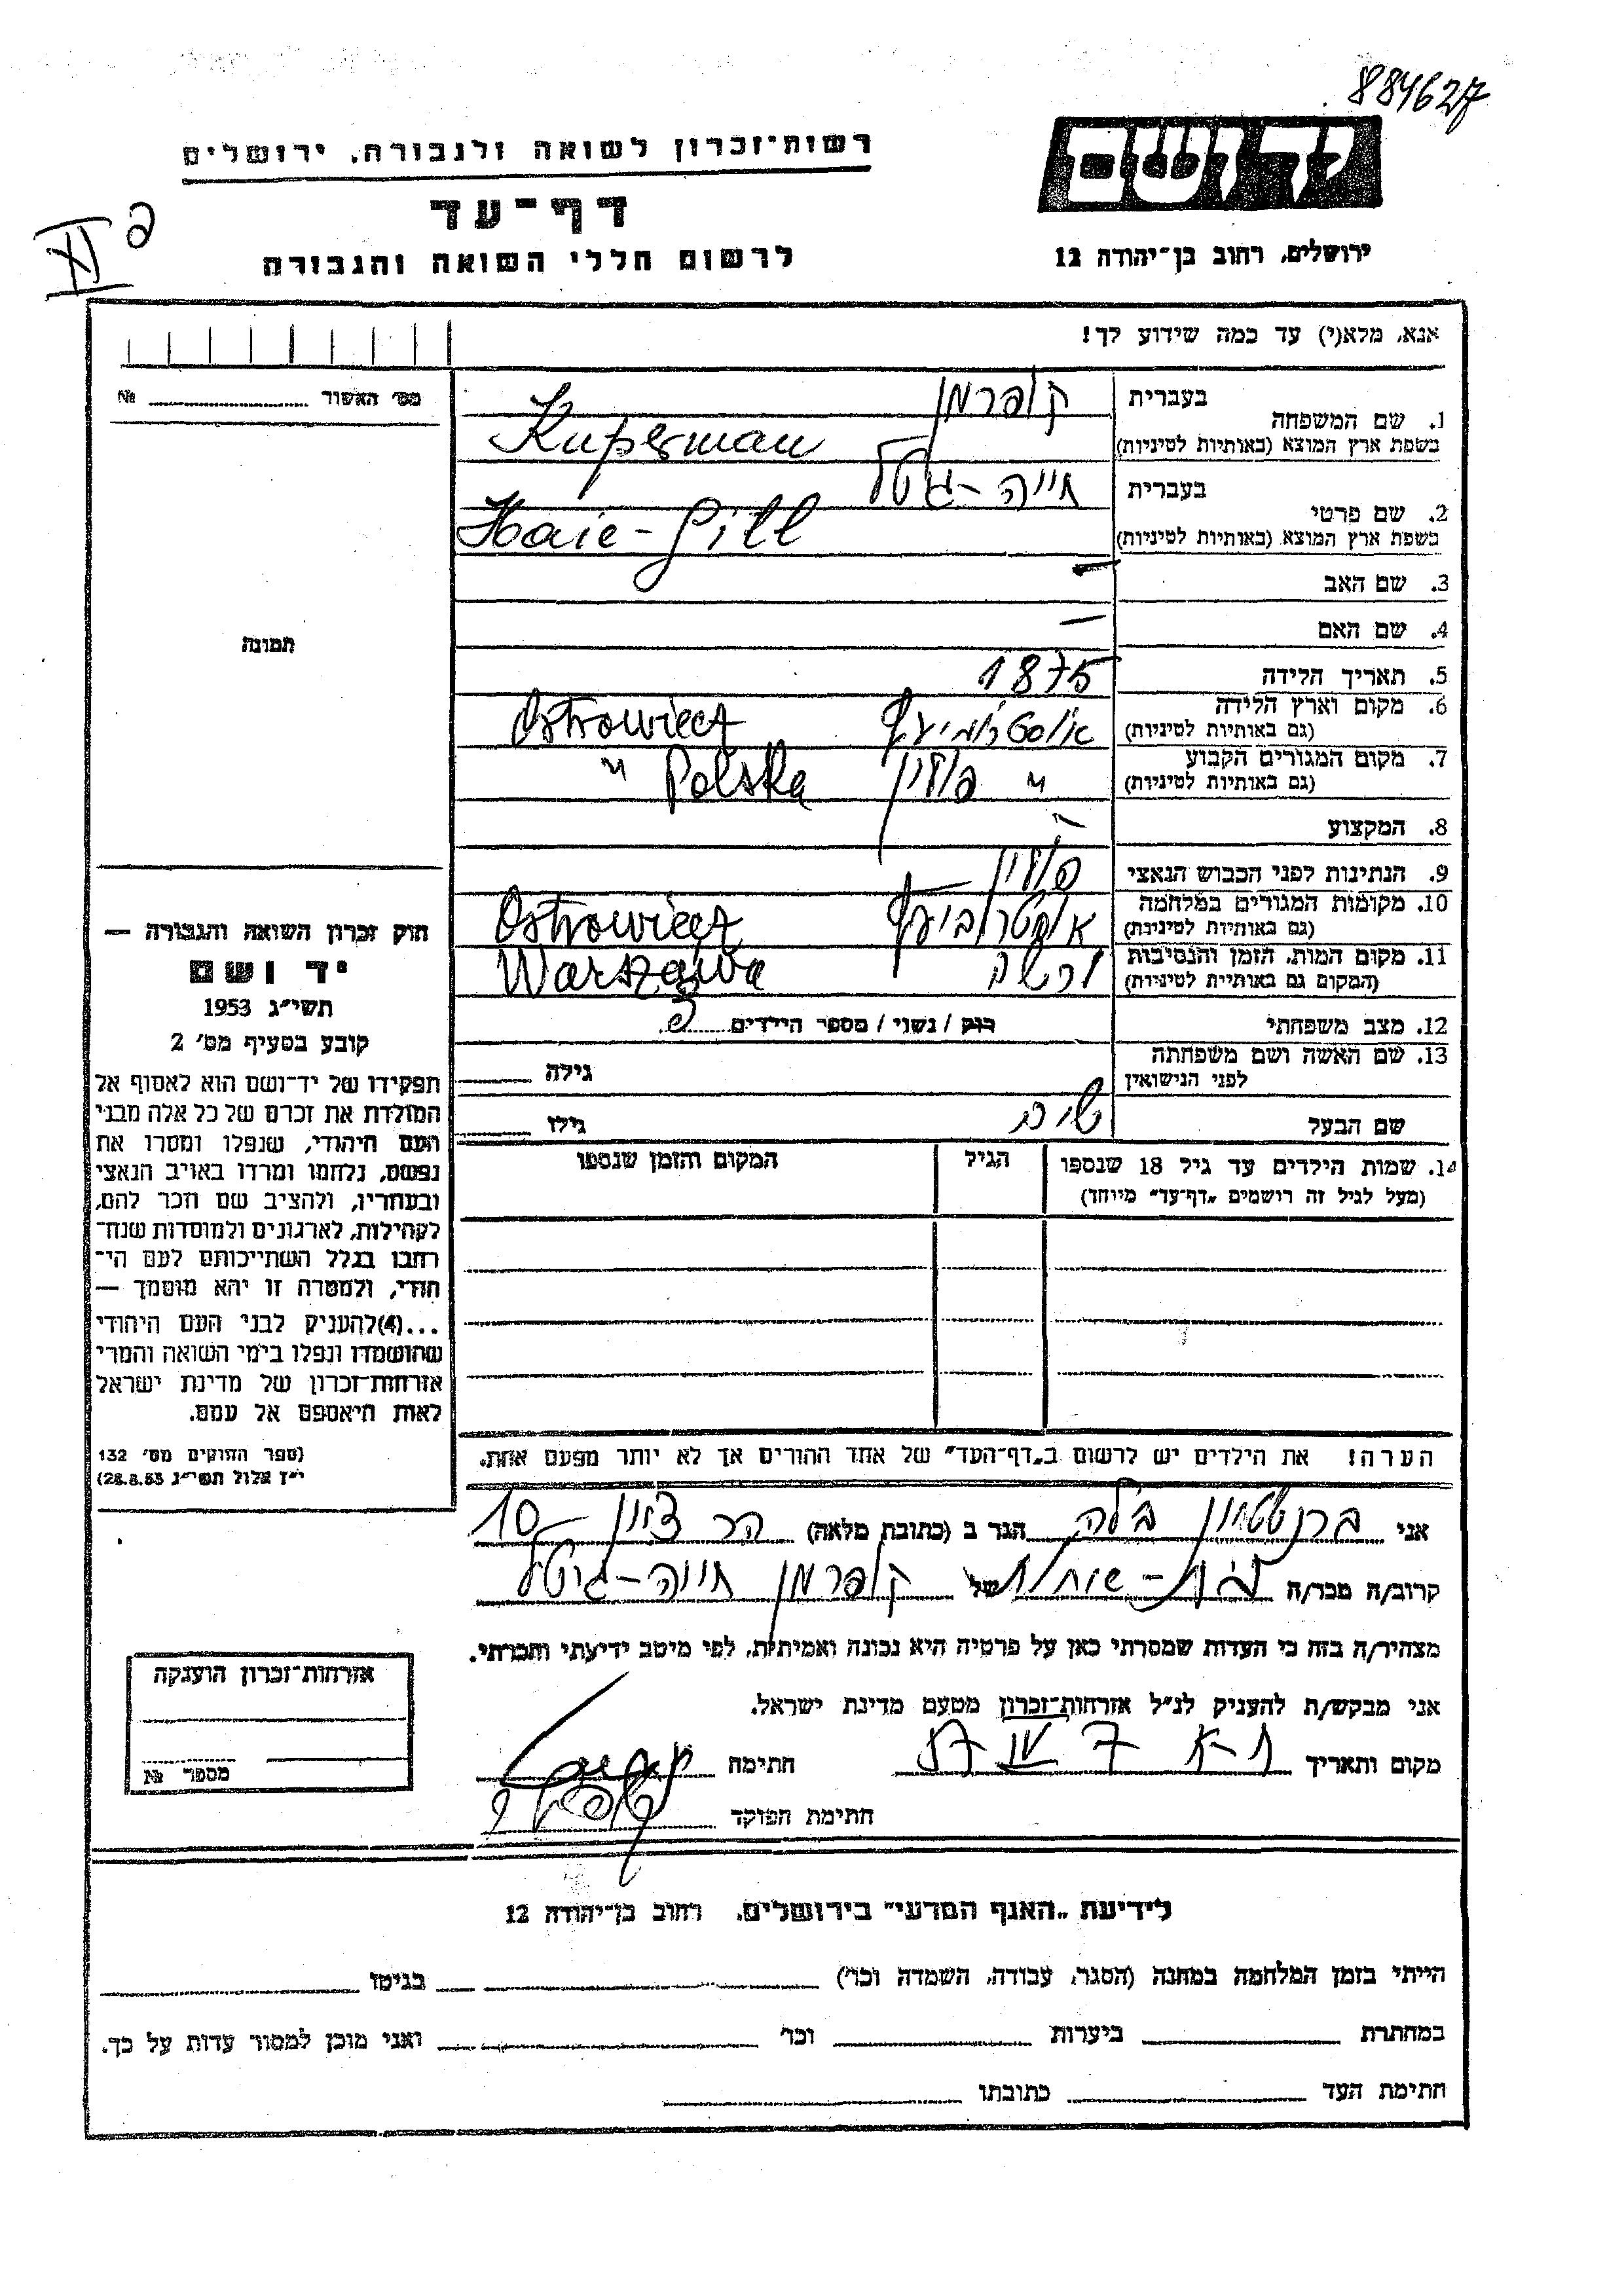 884627
רשות־זכרון לשואה ולגבורה, ירושלים
דף־עד
לרשום חללי השואה והגבורה
יד ושם
ירושלים, רחוב בן־יהודה 12
אנא, מלא(י) עד כמה שידוע לך!
מס' האשור № 
1. שם המשפחה
בעברית קופרמן
בשפת ארץ המוצא (באותיות לטיניות) Kuperman
2. שם פרטי
בעברית חייה-גיטל
בשפת ארץ המוצא (באותיות לטיניות) Haie-Gitl
3. שם האב –
4. שם האם –
5. תאריך הלידה 1875
6. מקום וארץ הלידה
(גם באותיות לטיניות) Ostrowiecz
7. מקום המגורים הקבוע
(גם באותיות לטיניות) " פולין " Polska
8. המקצוע –
9. הנתינות לפני הכבוש הנאצי פולין
10. מקומות המגורים במלחמה
(גם באותיות לטיניות) Ostrowiecz
11. מקום המות, הזמן והנסיבות
(המקום גם באותיות לטיניות) ורשה Warszawa
12. מצב משפחתי רוק / נשוי / מספר הילדים
13. שם האשה ושם משפחתה
לפני הנישואין גילה
שם הבעל גילו
14. שמות הילדים עד גיל 18 שנספו
(מעל לגיל זה רושמים „דף־עד" מיוחד)
הגיל
המקום והזמן שנספו
תמונה
חוק זכרון השואה והגבורה —
יד ושם
תשי״ג 1953
קובע בסעיף מס' 2
תפקידו של יד־ושם הוא לאסוף אל
המולדת את זכרם של כל אלה מבני
העם היהודי, שנפלו ומסרו את
נפשם, נלחמו ומרדו באויב הנאצי
ובעוזריו, ולהציב שם וזכר להם,
לקהילות, לארגונים ולמוסדות שנח־
רבו בגלל השתייכותם לעם הי־
הודי, ולמטרה זו יהא מוסמך —
...(4)להעניק לבני העם היהודי
שהושמדו ונפלו בימי השואה והמרי
אזרחות־זכרון של מדינת ישראל
לאות היאספם אל עמם.
(ספר החוקים מס' 132
י״ז אלול תשי״ג 28.8.53)
הערה! את הילדים יש לרשום ב„דף־העד" של אחד ההורים אך לא יותר מפעם אחת.
אני ברנשטיין בלה הגר ב (כתובת מלאה) הר ציון 10
קרוב/ה מכר/ה של קופרמן חייה-גיטל
מצהיר/ה בזה כי העדות שמסרתי כאן על פרטיה היא נכונה ואמיתית, לפי מיטב ידיעתי והכרתי.
אני מבקש/ת להעניק לנ״ל אזרחות־זכרון מטעם מדינת ישראל.
מקום ותאריך ת-א 7 IV 57 חתימה
חתימת הפוקד
אזרחות־זכרון הוענקה
מספר №
לידיעת „האגף המדעי" בירושלים, רחוב בן־יהודה 12
הייתי בזמן המלחמה במחנה (הסגר, עבודה, השמדה וכו') בגיטו
במחתרת ביערות וכו' ואני מוכן למסור עדות על כך.
חתימת העד כתובתו